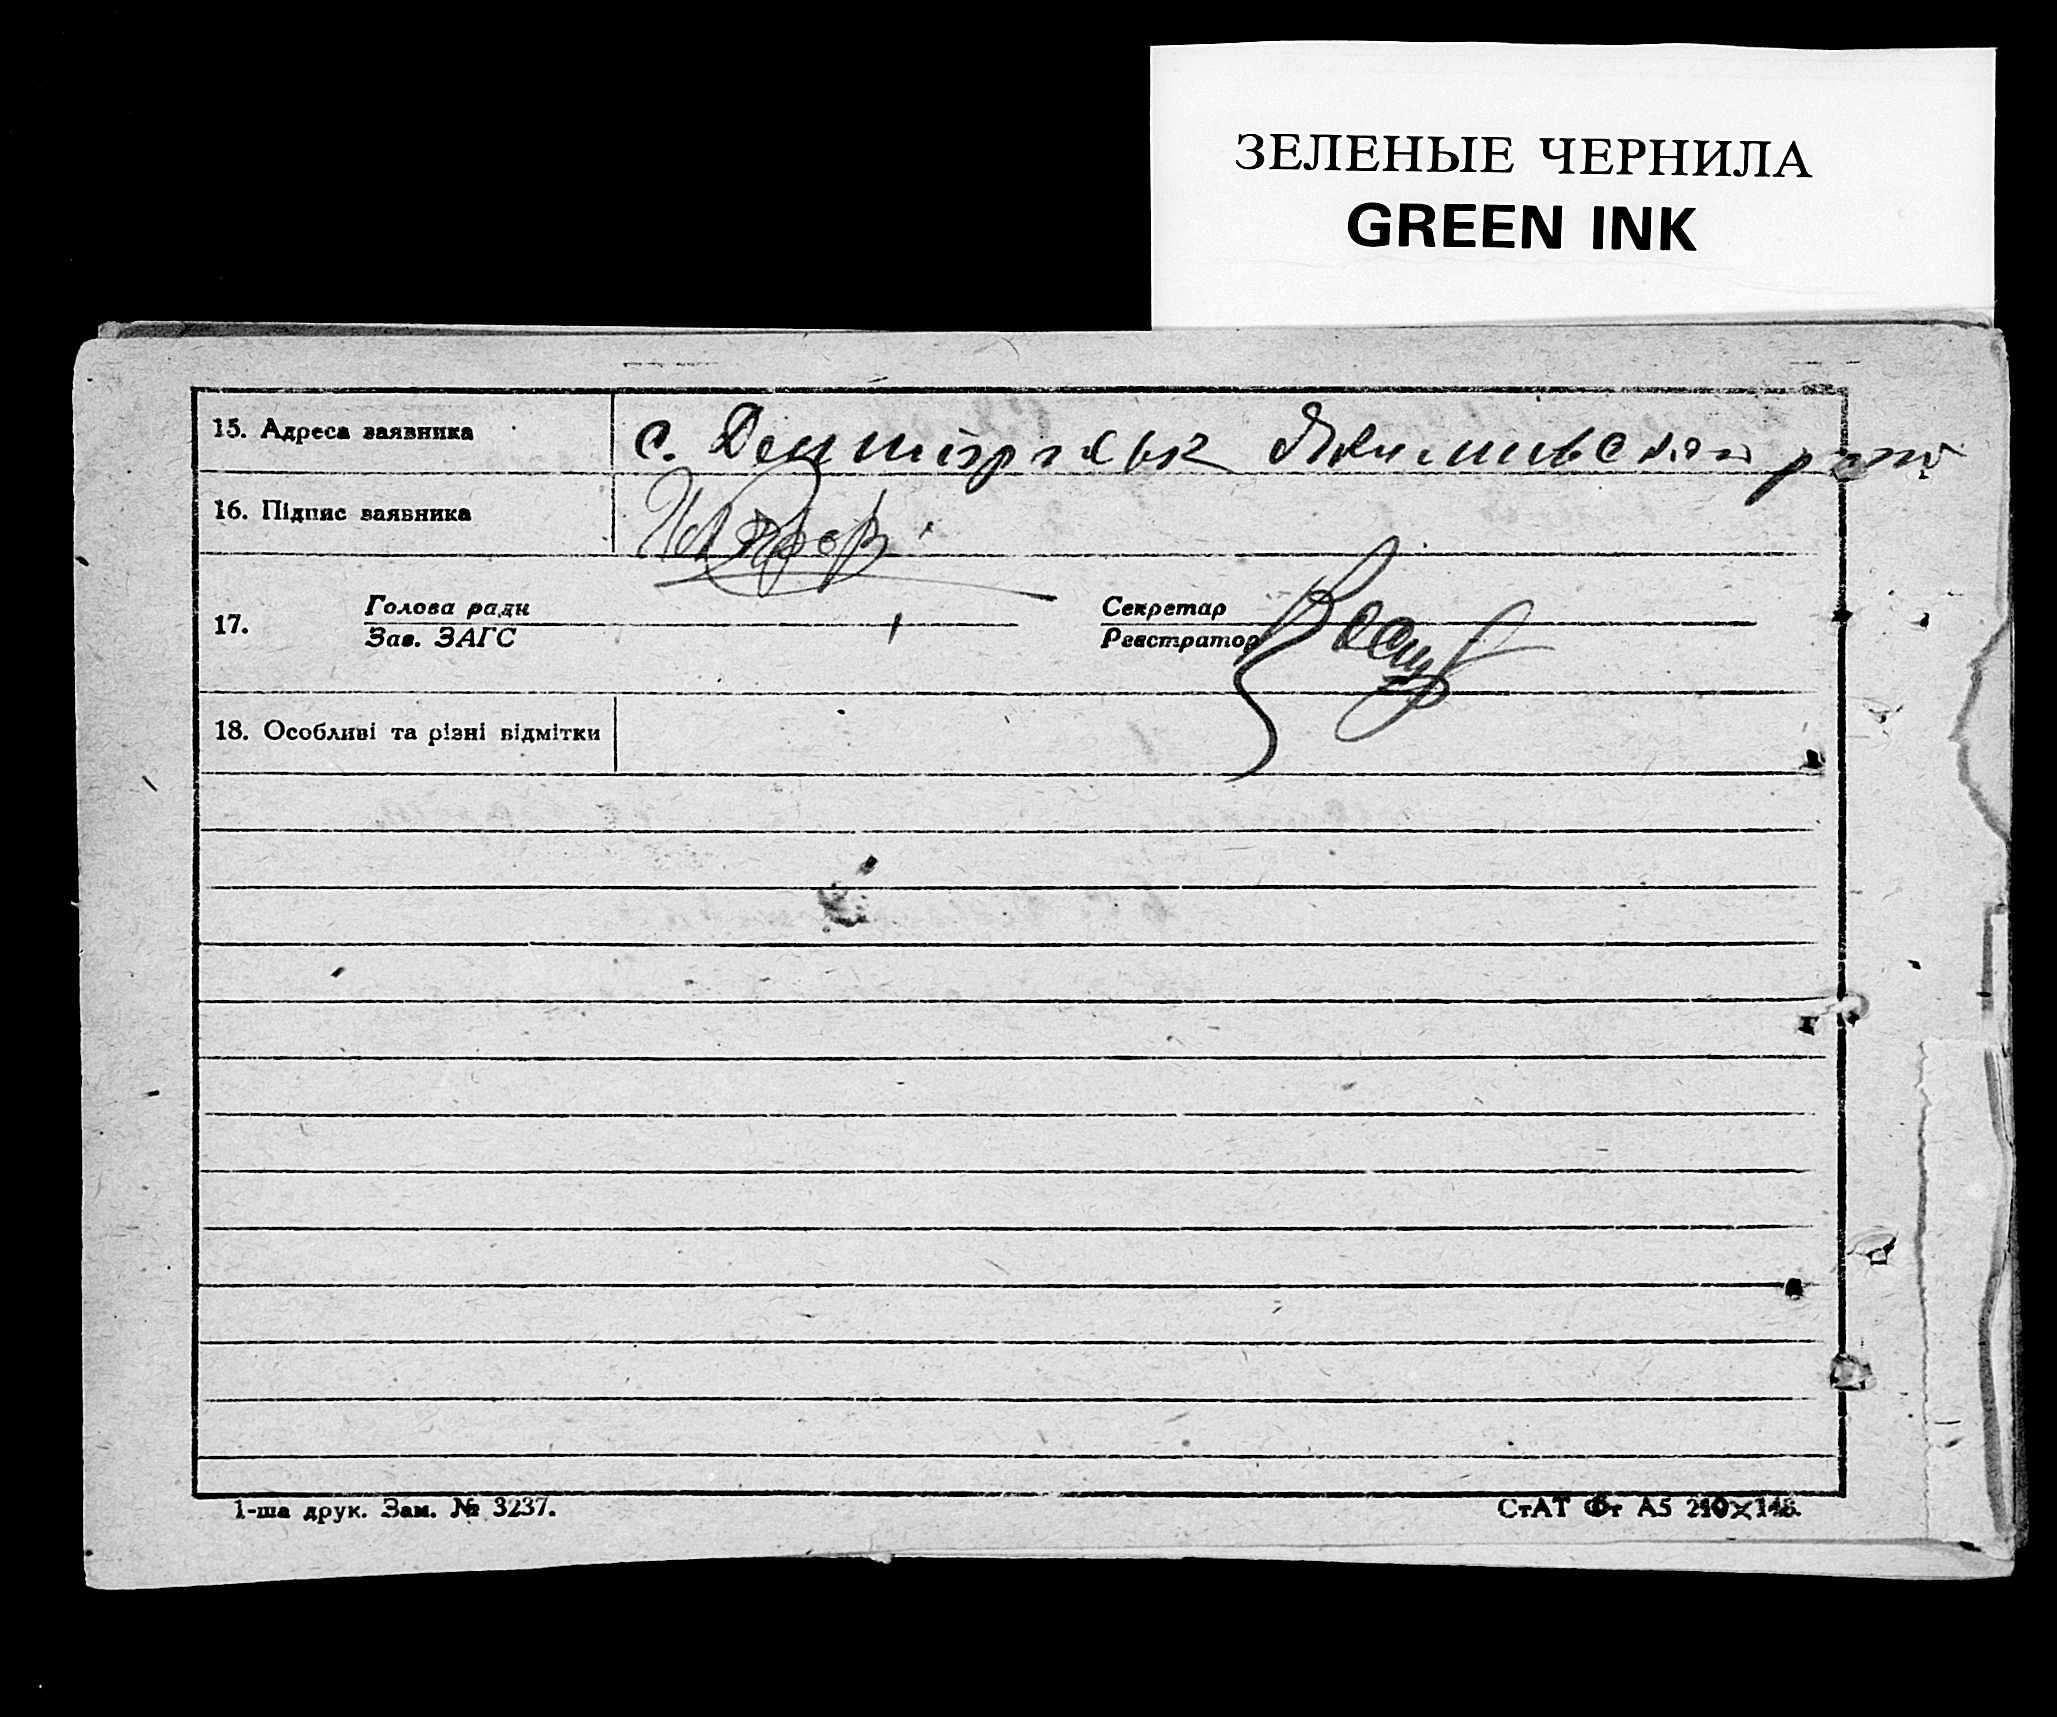 ЗЕЛЕНЫЕ ЧЕРНИЛА
GREEN INK
15. Адреса заявника с.
16. Підпис заявника
17. Голова ради Секретар
Зав. ЗАГС Реєстратор
18. Особливі та різні відмітки
1-ша друк. Зам. № 3237. СтАТ Фт А5 210×148.